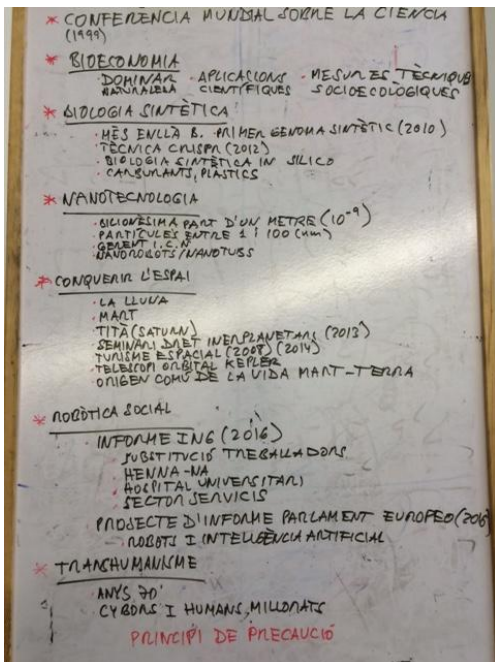 * CONFERENCIA MUNDIAL SOBRE LA CIENCIA
(1999)
* BIOECONOMIA
· DOMINAR · APLICACIONS · MESURES TÈCNIQUES
NATURALESA CIENTÍFIQUES SOCIOECOLOGIQUES
* BIOLOGIA SINTÈTICA
· MÉS ENLLÀ B. PRIMER GENOMA SINTÈTIC (2010)
· TÈCNICA CRISPR (2012)
· BIOLOGIA SINTÈTICA IN SILICO
· CARBURANTS, PLÀSTICS
* NANOTECNOLOGIA
· BILIONÈSIMA PART D'UN METRE (10⁻⁹)
· PARTICULES ENTRE 1 i 100 (nm)
· GERENT I.C.N
· NANOROBOTS/NANOTUBS
* CONQUERIR L'ESPAI
· LA LLUNA
· MART
· TITÀ (SATURN)
· SEMINARI DRET INERPLANETARI (2013)
· TURISME ESPACIAL (2008) (2014)
· TELESCOPI ORBITAL KEPLER
· ORIGEN COMÚ DE LA VIDA MART-TERRA
* ROBÒTICA SOCIAL
· INFORME ING (2016)
· SUBSTITUCIÓ TREBALLADORS
· HENNA-NA
· HOSPITAL UNIVERSITARI
· SECTOR SERVICIS
· PROJECTE D'INFORME PARLAMENT EUROPEO (2016)
- ROBOTS I INTEL·LIGÈNCIA ARTIFICIAL
* TRANSHUMANISME
· ANYS 70'
· CYBORS I HUMANS MILLORATS
PRINCIPI DE PRECAUCIÓ